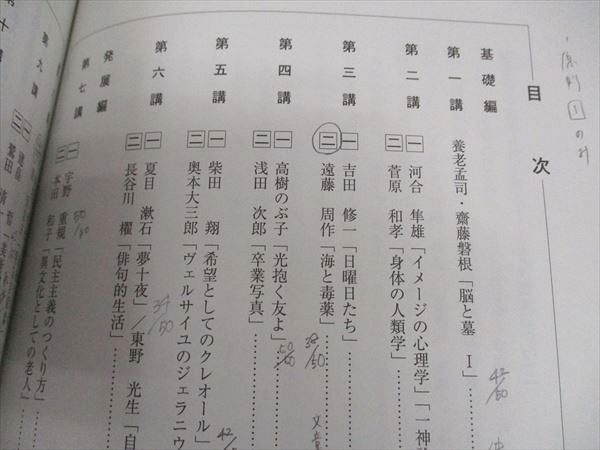 ・原則 1 のみ
目次
基礎編
第一講 養老孟司・齋藤磐根「脳と墓 Ⅰ」………
42/50
第二講 一 河合 隼雄「イメージの心理学」「一神
二 菅原 和孝「身体の人類学」………
第三講 一 吉田 修一「日曜日たち」………
二 遠藤 周作「海と毒薬」………
38/50
文章
第四講 一 高樹のぶ子「光抱く友よ」………
50/50
二 浅田 次郎「卒業写真」………
第五講 一 柴田 翔「希望としてのクレオール」
42/
二 奥本大三郎「ヴェルサイユのジェラニウ
第六講 一 夏目 漱石「夢十夜」／東野 光生「自
34/50
二 長谷川 櫂「俳句的生活」………
発展編
第七講 一 宇野 重規「民主主義のつくり方」
50/50
二 本田 和子「異文化としての老人」
第九講 一
二 鷲田 清
第十講